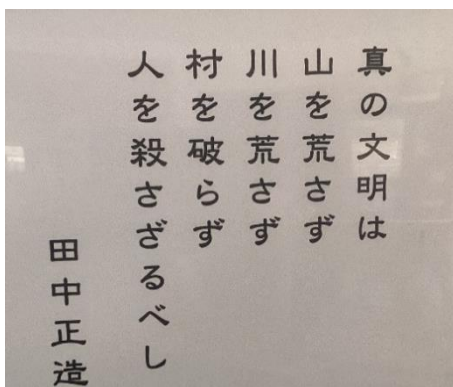 真の文明は
山を荒さず
川を荒さず
村を破らず
人を殺さざるべし
田中正造